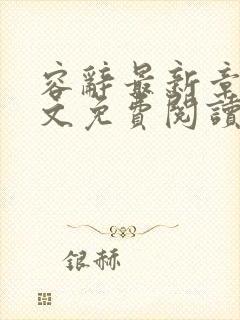 容辭最新章
文免費閱讀
銀赫